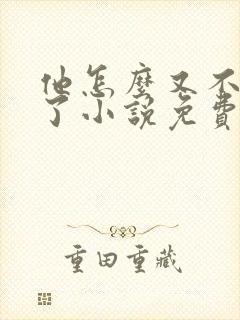 他怎麼又不
了小說免費
重田重藏